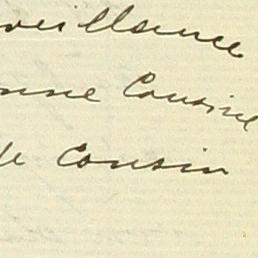 veillance
onne Cousine
de Cousin